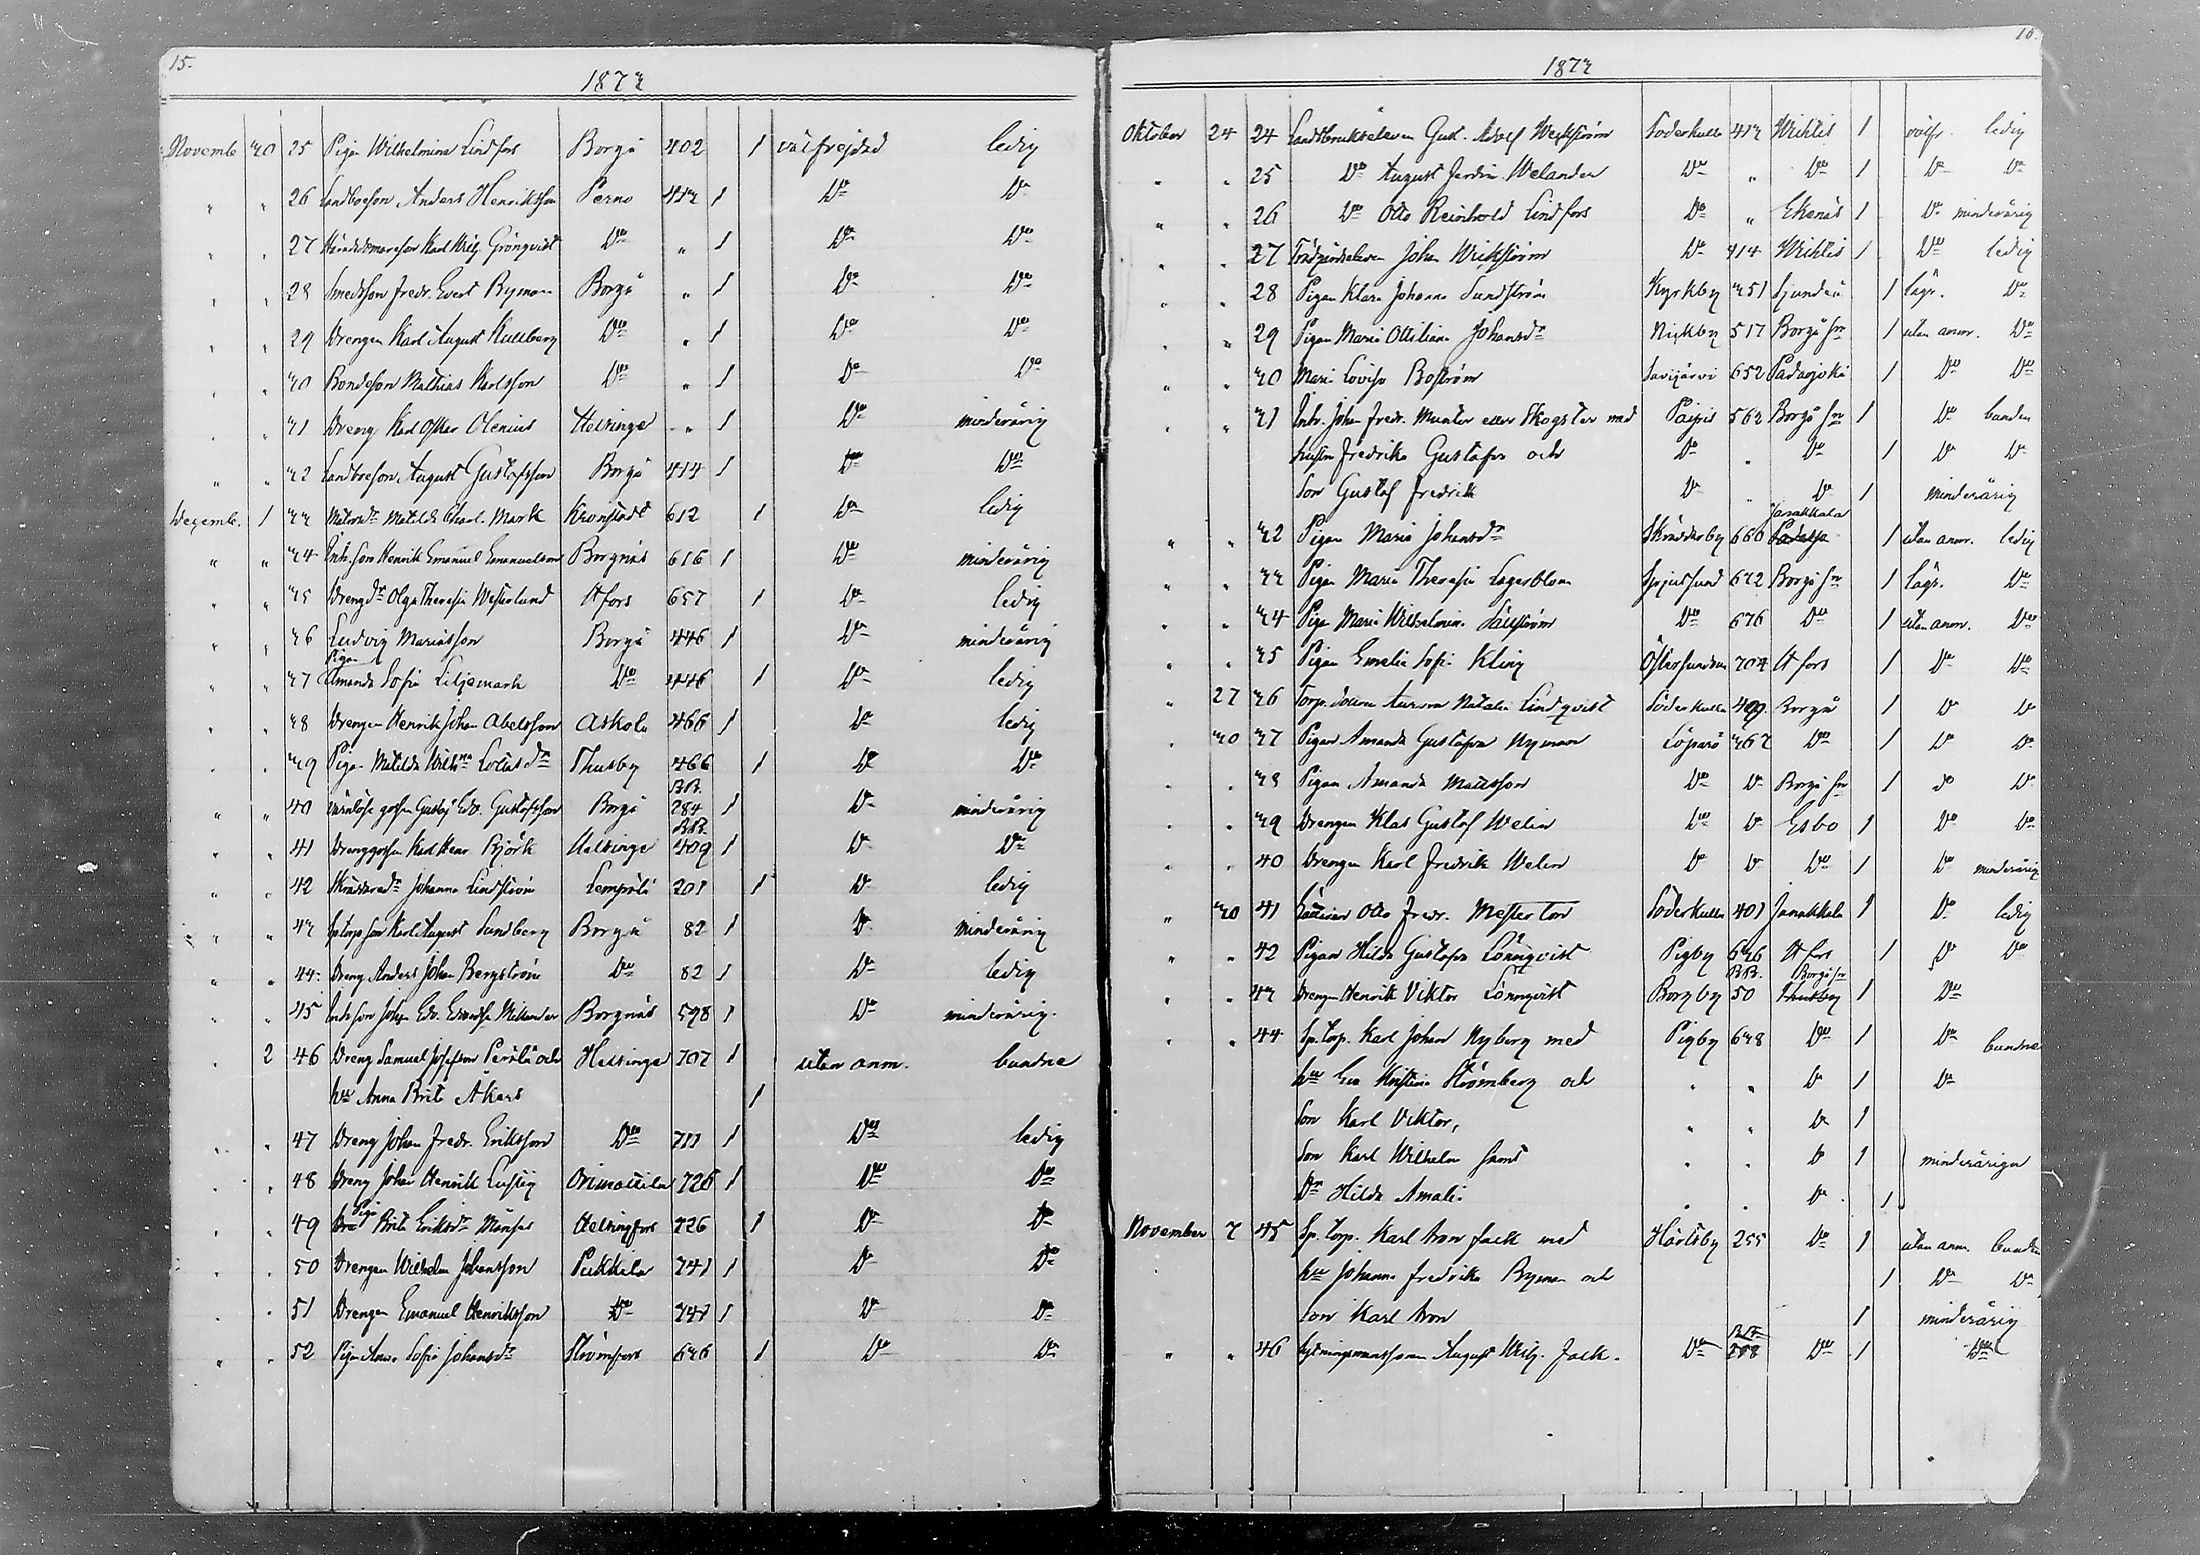 15.
1873
Novemb. 30 25 Pigan Wilhelmina Lindfors Borgå 402 1 välfrejdad ledig
" " 26 Landboeson Anders Henriksson Perno 413 1 Do Do
" " 27 Karl Wilh. Grönqvist Do " 1 Do Do
" " 28 Smedsson Fredr. Evert Ryman Borgå " 1 Do Do
" " 29 Drengen Karl August Kullberg Do " 1 Do Do
" " 30 Bondeson Mathias Karlsson Do " 1 Do Do
" " 31 Dreng Karl Oskar Olenius Helsinge " 1 Do minderårig
" " 32 Landboeson August Gustafsson Borgå 414 1 Do Do
Decemb. 1 33 Matild Charl. Mark Kronstadt 612 1 Do ledig
" " 34 Inh. son Henrik Emanuel Emanuelsson Borgnäs 616 1 Do minderårig
" " 35 Drengdr Olga Theresia Westerlund Hfors 657 1 Do ledig
" " 36 Ludvig Mariasson Borgå 446 1 Do minderårig
" " 37 Pigan Amanda Sofia Liljemark Do 446 1 Do ledig
" " 38 Drengen Henrik Johan Abelsson Askola 466 1 Do ledig
" " 39 Pigan Matilda Wilhna Thusby 466 1 Do Do
" " 40 Wärnlöse gossen Gustaf Edv. Gustafsson Borgå B.B. 284 1 Do minderårig
" " 41 Drenggossen Karl Henr. Björk Helsinge B.B. 309 1 Do Do
" " 42 Skräddaredr Johanna Lindström Lempälä 201 1 Do ledig
" " 43 Sp torp son Karl August Sundberg Borgå 82 1 Do minderårig
" " 44. Dreng Anders Johan Bergström Do 82 1 Do ledig
" " 45 Inh son Johan Edv. Edvardss. Mellander Borgnäs 598 1 Do minderårig.
" 2 46 Dreng Samuel Josefsson Perälä och Helsinge 707 1 utan anm. bundne
hu Anna Brita Åkers 1
" " 47 Dreng Johan Fredr. Eriksson Do 711 1 Do ledig
" " 48 Dreng Johan Henrik Lustig Orimattila 726 1 Do Do
" " 49 Piga Brita Eriksdr Helsingfors 726 1 Do Do
" " 50 Drengen Wilhelm Johansson Pukkila 741 1 Do Do
" " 51 Drengen Emanuel Henriksson Do 741 1 Do Do
" " 52 Pigan Anna Sofia Johansdr Strömfors 636 1 Do Do
16.
1873
Oktober 24 24 Landtbrukseleven Gust. Adolf Weckström Söderkulla 413 Wichtis 1 välfr. ledig
" " 25 Do August Ferdin. Welander Do " Do 1 Do Do
" " 26 Do Otto Reinhold Lindfors Do " Ekenäs 1 Do minderårig
" " 27 Trädgårdseleven Johan Weckström Do 414 Wichtis 1 Do ledig
" " 28 Pigan Klara Johanna Sundström Kyrkby 351 Sjundeå 1 lagv. Do
" " 29 Pigan Maria Ottiliana Johansdr Nickby 517 Borgå sn 1 utan anm. Do
" " 30 Maria Lovisa Boström Savijärvi 652 Padasjoki 1 Do Do
" " 31 Inh. Johan Fredr. Munter eller Skogster med Paipis 562 Borgå sn 1 Do bunden
hustru Fredrika Gustafva och Do " Do 1 Do Do
Son Gustaf Fredrik Do " Do 1 minderårig
" " 32 Pigan Maria Johansdr Skräddarby 660 Janakkala 1 utan anm. ledig
" " 33 Pigan Maria Theresia Lagerblom Spjutsund 672 Borgå sn 1 lagv. Do
" " 34 Piga Maria Wilhelmina Sällström Do 676 Do 1 utan anm. Do
" " 35 Pigan Emelie Sofi Kling Östersundom 704 Hfors 1 Do Do
" 27 36 Torp. dottern Aurora Natalia Lindqvist Söderkulla 409 Borgå 1 Do Do
" 30 37 Pigan Amanda Gustafva Nyman Löparö 367 Do 1 Do Do
" " 38 Pigan Amanda Mattsson Do Do Borgå sn 1 Do Do
" " 39 Drengen Klas Gustaf Welin Do Do Esbo 1 Do Do
" " 40 Drengen Karl Fredrik Welin Do Do Do 1 Do minderårig
" 30 41 Otto Fredr. Mesterton Söderkulla 401 Janakkala 1 Do ledig
" " 42 Pigan Hilda Gustafva Lönnqvist Pigby 636 Hfors 1 Do Do
" " 43 Drengen Henrik Viktor Lönnqvist Borgby B.B. 50 Borgå sn Thusby 1 Do
" " 44 Sp. torp. Karl Johan Nyberg med Pigby 638 Do 1 Do bundne
hu Eva Kristina Strömberg och " " Do 1 Do
Son Karl Viktor, " " Do 1
Son Karl Wilhelm samt " " Do 1 minderåriga
Dr Hilda Amalia " " Do 1
November 7 45 Sp. torp. Karl Aron Falk med Hårtsby 255 Do 1 utan anm. bunden
hu Johanna Fredrika Ryman och 1 Do Do
son Karl Aron 1 minderårig
" " 46 August Wilh. Falk. Do Do 1 Do